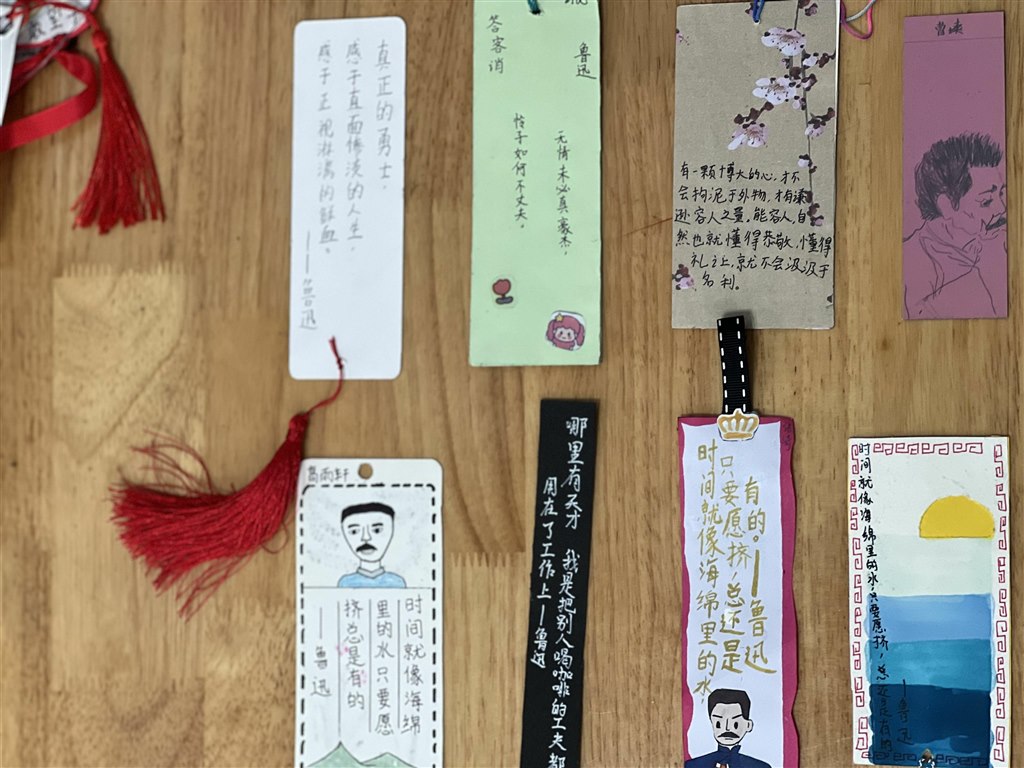 真正的勇士,
感于直面惨淡的人生,
感于正视淋漓的鲜血。
——鲁迅
答客诮
鲁迅
无情未必真豪杰,
怜子如何不丈夫。
有一颗博大的心,才不
会拘泥于外物,才有谦
逊容人之量。能容人,自
然也就懂得恭敬,懂得
礼之上,就不会汲汲于
名利。
葛雨轩
时间就像海绵
里的水只要愿
挤总是有的
——鲁迅
哪里有天才 我是把别人喝咖啡的工夫都
用在了工作上——鲁迅
时间就像海绵里的水,
只要愿挤,总还是
有的。——鲁迅
时间就像海绵里的水,只要愿挤,总还是有的
——鲁迅